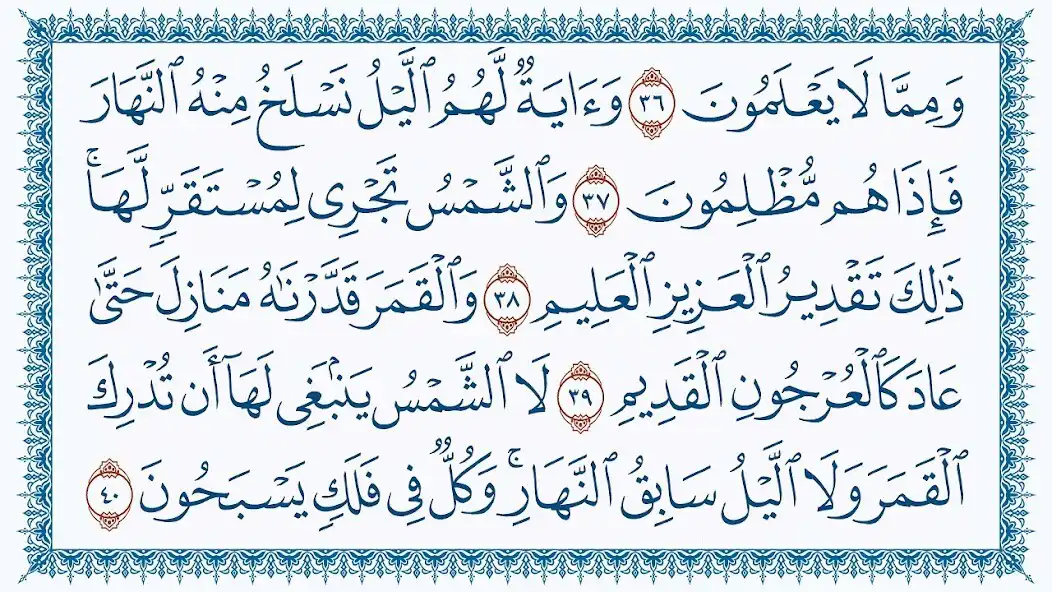 وَمِمَّا لَا يَعۡلَمُونَ ٣٦ وَءَايَةٞ لَّهُمُ ٱلَّيۡلُ نَسۡلَخُ مِنۡهُ ٱلنَّهَارَ
فَإِذَا هُم مُّظۡلِمُونَ ٣٧ وَٱلشَّمۡسُ تَجۡرِي لِمُسۡتَقَرّٖ لَّهَاۚ
ذَٰلِكَ تَقۡدِيرُ ٱلۡعَزِيزِ ٱلۡعَلِيمِ ٣٨ وَٱلۡقَمَرَ قَدَّرۡنَٰهُ مَنَازِلَ حَتَّىٰ
عَادَ كَٱلۡعُرۡجُونِ ٱلۡقَدِيمِ ٣٩ لَا ٱلشَّمۡسُ يَنۢبَغِي لَهَآ أَن تُدۡرِكَ
ٱلۡقَمَرَ وَلَا ٱلَّيۡلُ سَابِقُ ٱلنَّهَارِۚ وَكُلّٞ فِي فَلَكٖ يَسۡبَحُونَ ٤٠